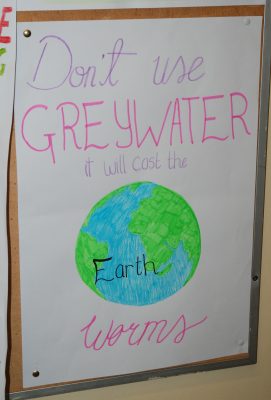 Don't use
GREYWATER
it will cost the
Earth
worms